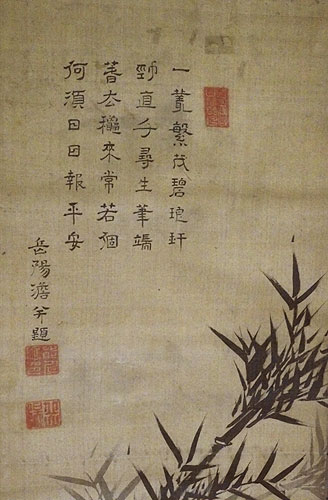 一叢繁茂碧琅玕
勁直千尋生筆端
暑去穐來常若個
何須日日報平安
岳陽澹題